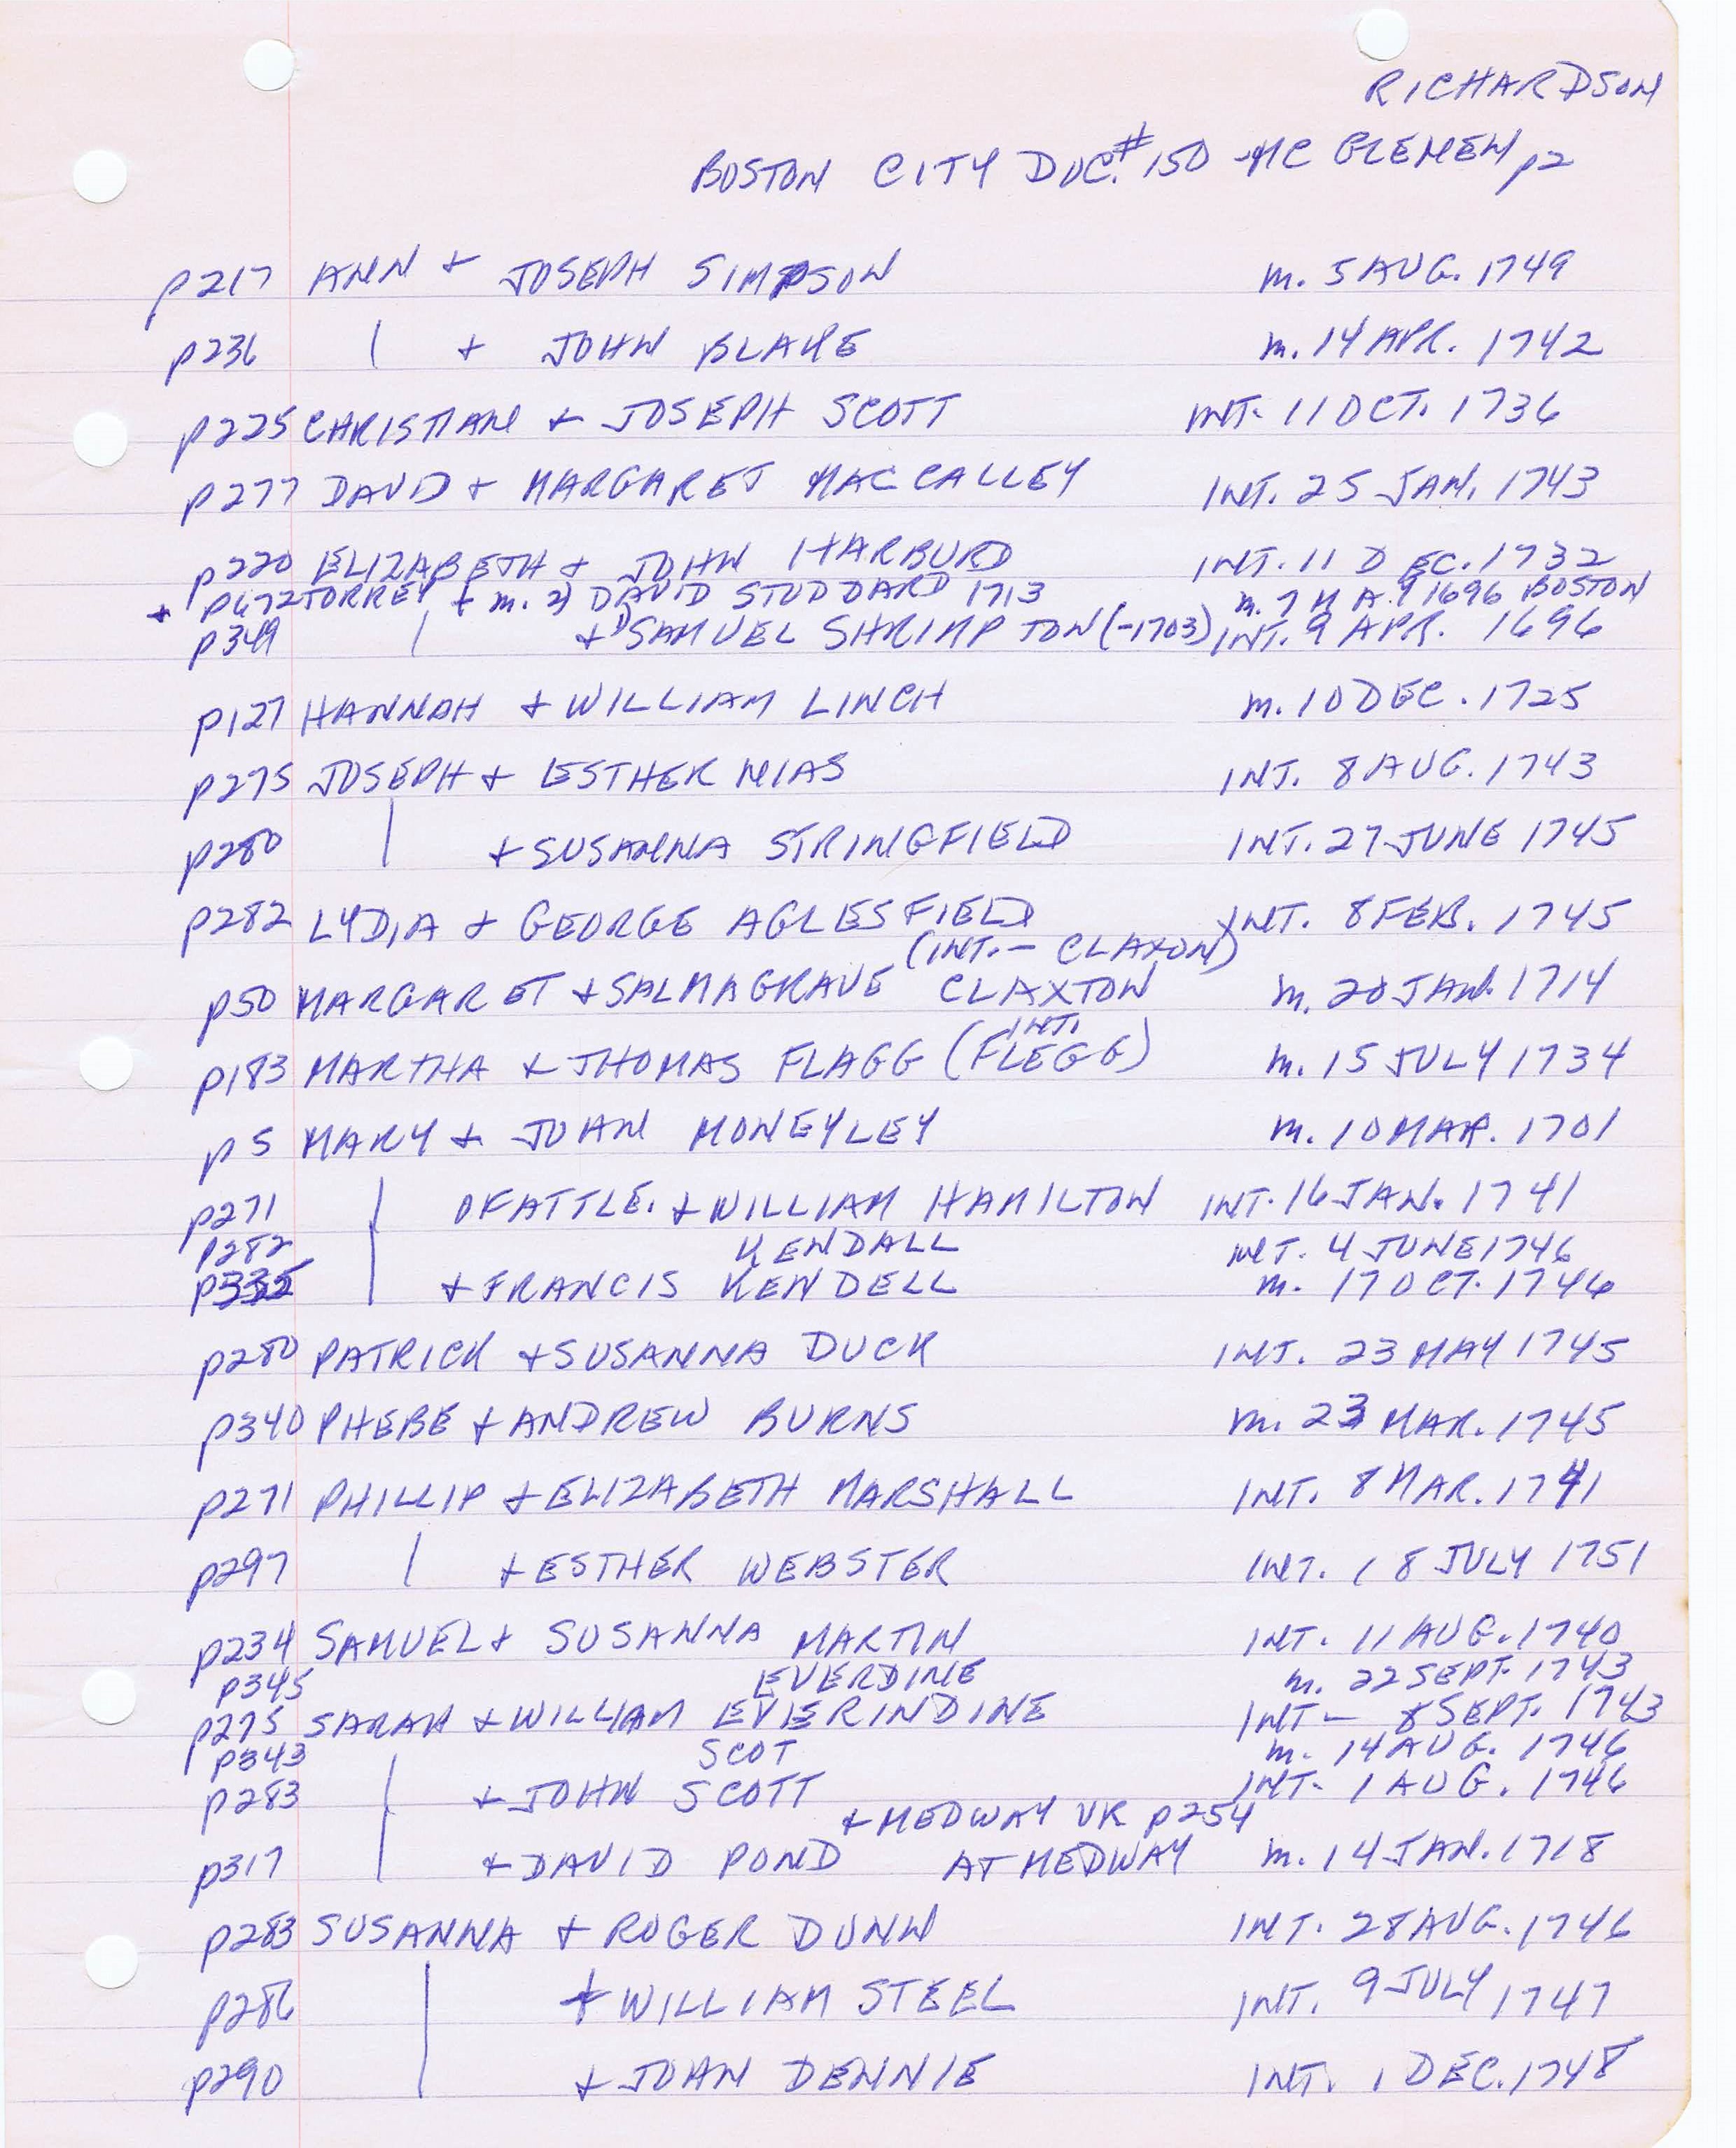 RICHARDSON
BOSTON CITY DOC.# 150 - MC GLENEN p2
p217 ANN + JOSEPH SIMPSON m. 5 AUG. 1749
p236 | + JOHN BLAKE m. 14 APR. 1742
p225 CHRISTIAN + JOSEPH SCOTT INT. 11 OCT. 1736
p277 DAVID + MARGARET MACCALLEY INT. 25 JAN. 1743
p220 ELIZABETH + JOHN HARBURD INT. 11 DEC. 1732
+ p672 TORREY + m. 2) DAVID STUDDARD 1713 m. 7 MAY 1696 BOSTON
p349 | + 1) SAMUEL SHRIMPTON (-1703) INT. 9 APR. 1696
p127 HANNAH + WILLIAM LINCH m. 10 DEC. 1725
p275 JOSEPH + ESTHER MIAS INT. 8 AUG. 1743
p280 | + SUSANNA STRINGFIELD INT. 27 JUNE 1745
p282 LYDIA + GEORGE AGLESFIELD INT. 8 FEB. 1745
(INT. - CLAXON)
p50 MARGARET + SALMAGRAVE CLAXTON m. 20 JAN. 1714
INT.
p183 MARTHA + THOMAS FLAGG (FLEGG) m. 15 JULY 1734
p5 MARY + JOHN MONEYLEY m. 10 MAR. 1701
p271 | OF ATTLE. + WILLIAM HAMILTON INT. 16 JAN. 1741
p282 KENDALL INT. 4 JUNE 1746
p335 | + FRANCIS KENDELL m. 17 OCT. 1746
p280 PATRICK + SUSANNA DUCK INT. 23 MAY 1745
p340 PHEBE + ANDREW BURNS m. 23 MAR. 1745
p271 PHILLIP + ELIZABETH MARSHALL INT. 8 MAR. 1741
p297 | + ESTHER WEBSTER INT. 18 JULY 1751
p234 SAMUEL + SUSANNA MARTIN INT. 11 AUG. 1740
p345 EVERDINE m. 22 SEPT. 1743
p275 SARAH + WILLIAM EVERINDINE INT - 8 SEPT. 1743
p343 SCOT m. 14 AUG. 1746
p283 | + JOHN SCOTT INT- 1 AUG. 1746
+ MEDWAY VR p254
p317 | + DAVID POND AT MEDWAY m. 14 JAN. 1718
p283 SUSANNA + ROGER DUNN INT. 28 AUG. 1746
p286 | + WILLIAM STEEL INT. 9 JULY 1747
p290 | + JOHN DENNIE INT. 1 DEC. 1748